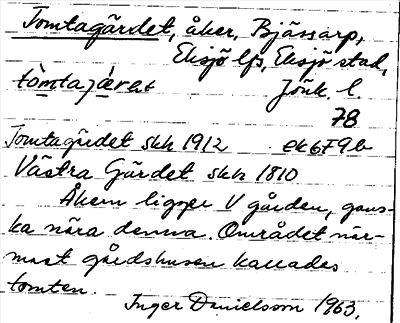 Tomtagärdet, åker, Bjässarp,
Eksjö lfs, Eksjö stad,
tòmtajǽret Jönk. l.
78
Tomtagärdet skh 1912 ek 679b
Västra Gärdet skh 1810
Åkern ligger V gården, gans-
ka nära denna. Området när-
mast gårdshusen kallades
tomten.
Inger Danielsson 1963.